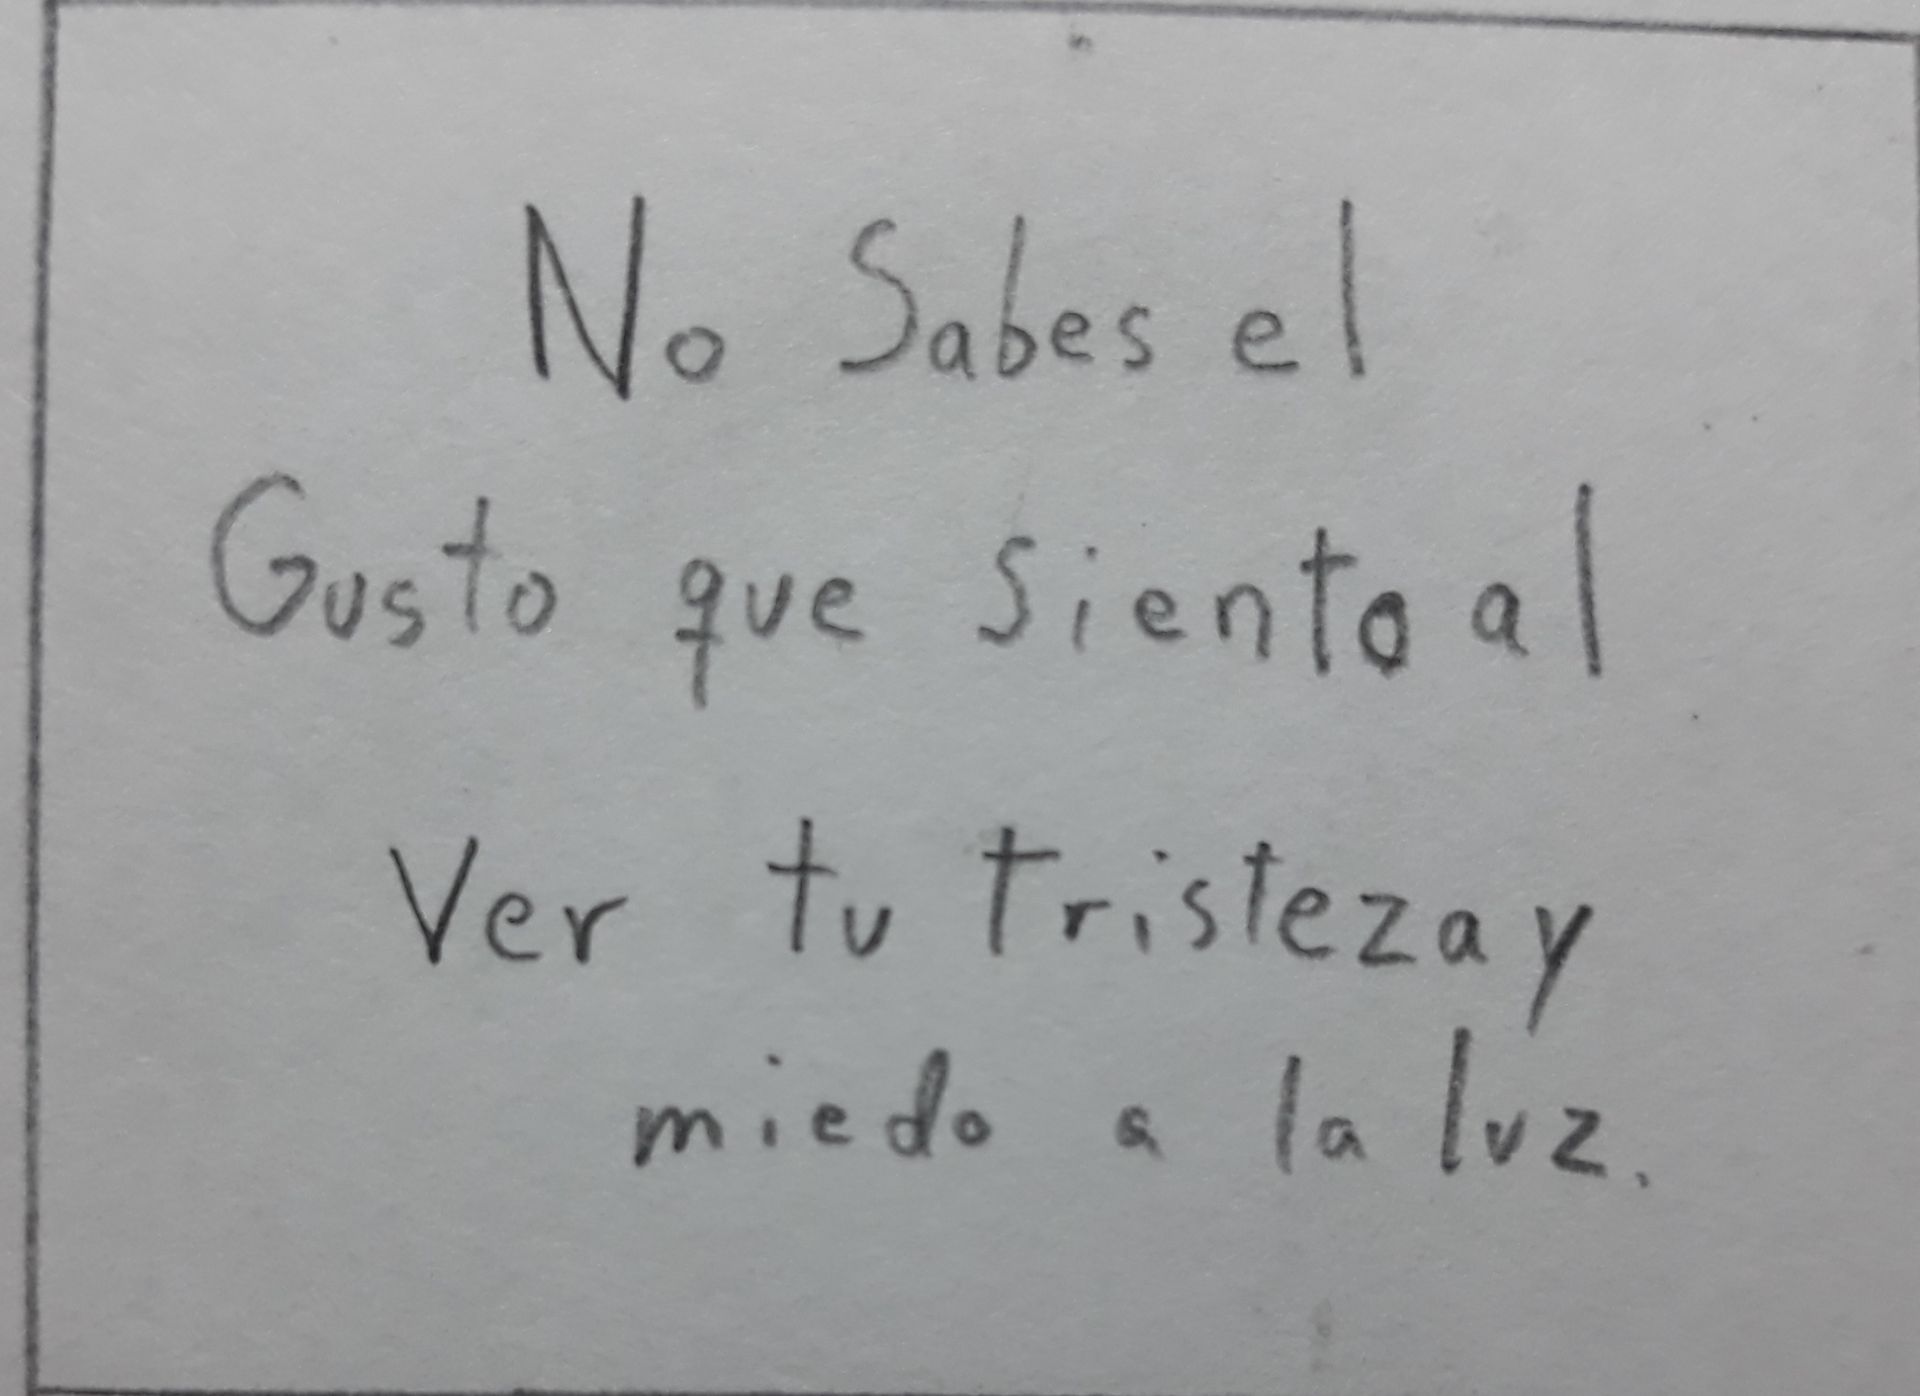 No Sabes el
Gusto que siento al
Ver tu tristeza y
miedo a la luz.